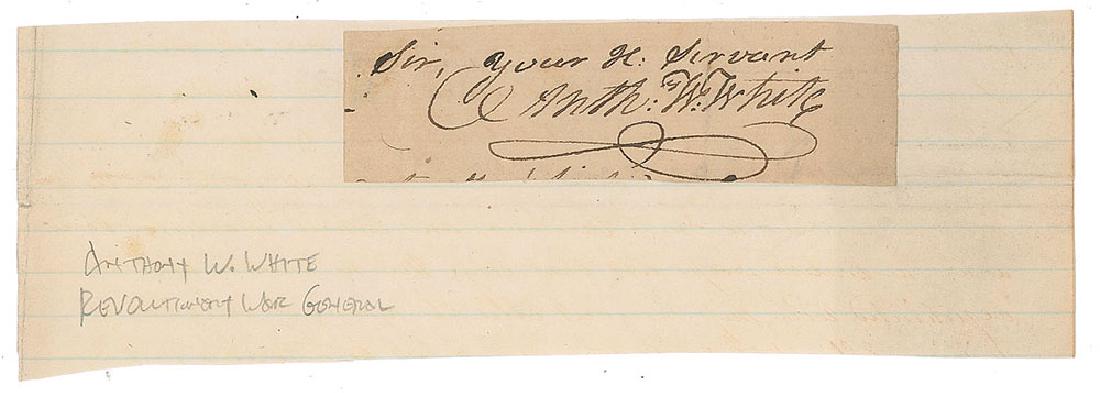 Sir, your H: Servant
Anth: W: White
Anthony W. White
Revolutionary War General